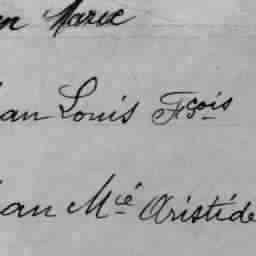 en Marie
ean Louis Fçois
ean Mie Aristide